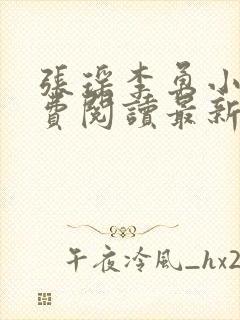 張瑤李勇小
費閱讀最新
午夜冷風_hx2